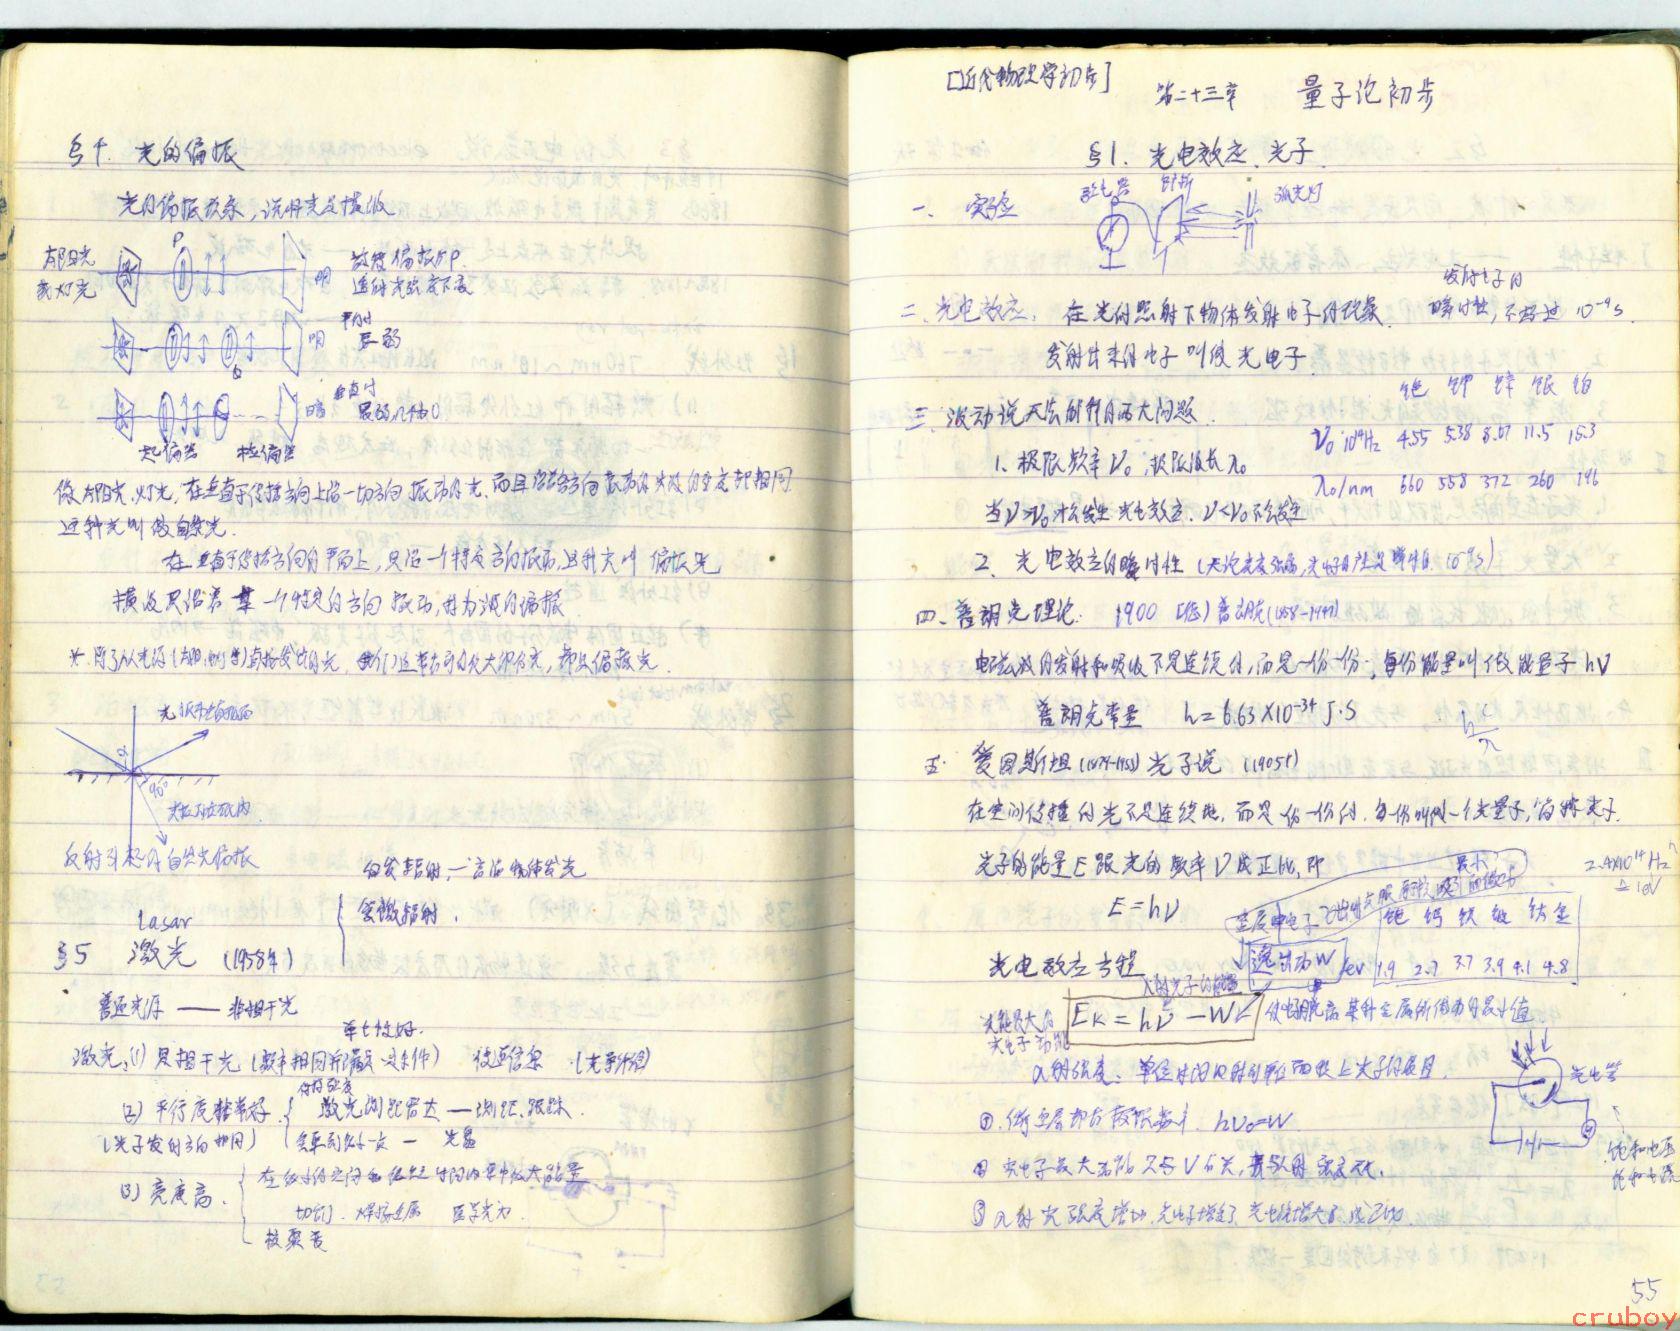 §4. 光的偏振
光的偏振现象,说明光是横波
太阳光
或灯光
P
明
放走偏振片P.
透射光强度不变
明
平行时
Q
暗
垂直时
最弱几乎为0
起偏器 检偏器
像太阳光、灯光,在垂直于传播方向上沿一切方向振动的光,而且沿各方向振动的光波的强度都相同
这种光叫做自然光.
在垂直于传播方向的平面上,只沿一个特定方向振动,这种光叫偏振光
横波只沿着某一个特定的方向振动,称为波的偏振.
*.除了从光源(太阳,灯等)直接发出的光,我们通常看到的绝大部分光,都是偏振光.
光振动垂直纸面
α
90°
光振动在纸内
反射引起的自然光偏振
自发辐射,—普通物体发光
受激辐射.
Lasar
§5 激光 (1958年)
普通光源 —— 非相干光
单色性好.
激光:(1) 是相干光(频率相同所满足条件) 传递信息.(光导纤维)
(2) 平行度非常好. 激光测距雷达—测距、跟踪.
(光子发射方向相同) 会聚到很小一点 — 光盘
(3) 亮度高. 在很小的空间和很短时间内集中很大能量
切割、焊接金属 医学光刀.
核聚变
[近代物理学初步] 第二十三章 量子论初步
§1. 光电效应、光子.
一、实验 验电器 锌板 弧光灯
二.光电效应. 在光的照射下物体发射电子的现象.
发射电子的
瞬时性,不超过10⁻⁹s.
发射出来的电子叫做光电子
三.波动说无法解释的两大问题.
铯 钾 锌 银 铂
ν₀ 10¹⁴Hz 4.55 5.38 8.07 11.5 15.3
λ₀/nm 660 558 372 260 196
1. 极限频率ν₀,极限波长λ₀
当ν>ν₀才会发生光电效应. ν<ν₀不会发生
2. 光电效应的瞬时性 (无论光多强弱,光电子的产生是瞬时的.10⁻⁹s)
四、普朗克理论: 1900 [德]普朗克(1858-1947)
电磁波的发射和吸收不是连续的,而是一份一份;每份能量叫做能量子 hν
普朗克常量 h=6.63×10⁻³⁴J·S
h c/λ
五. 爱因斯坦(1879-1955)光子说 (1905年)
在空间传播的光不是连续的,而是一份一份的,每份叫做一个光量子,简称光子.
光子的能量E跟光的频率ν成正比,即
E=hν
2.4×10¹⁴Hz
≙1eV
铯 钙 镁 铍 钛 金
光电效应方程
逸出功W /eV 1.9 2.7 3.7 3.9 4.1 4.8
入射光子的能量
Eₖ=hν-W
使电子脱离某种金属所做功的最小值
光能最大的
光电子动能
入射强度:单位时间内射到单位面积上光子的数目.
①.任何金属都有极限频率 hν₀=W
② 光电子最大动能只与ν有关,并与入射强度无关.
③ 入射光强度增加,光电子增多,光电流增大,成正比.
光电管
饱和电压
饱和电流
55
cruboy